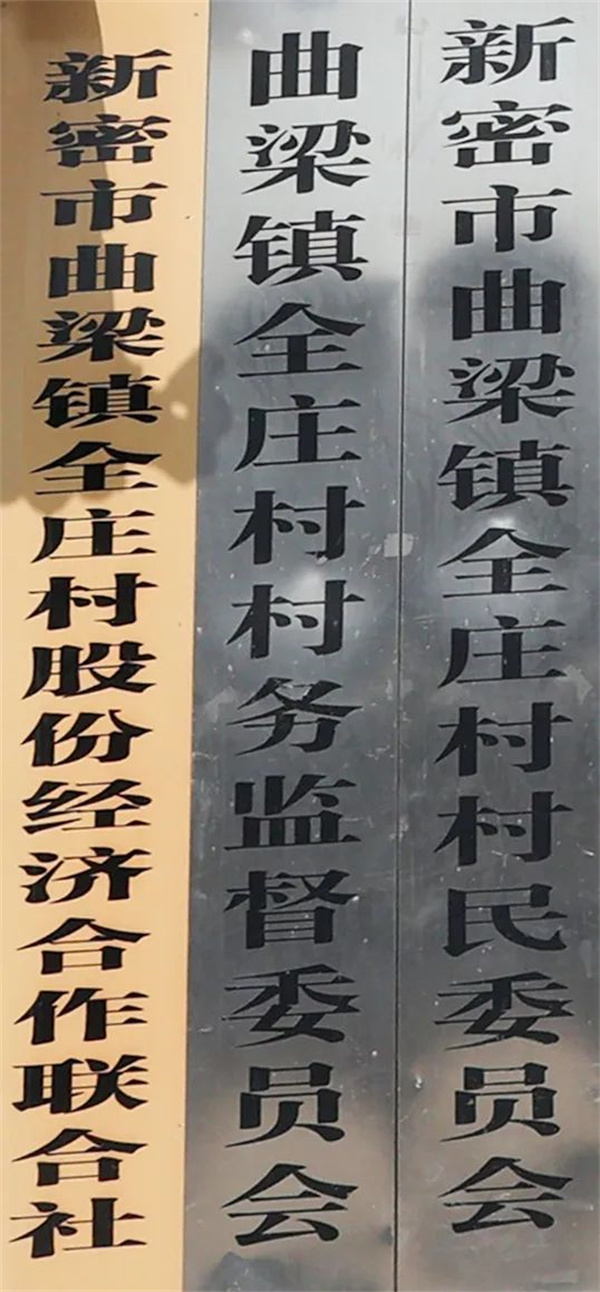 新密市曲梁镇全庄村村民委员会
曲梁镇全庄村村务监督委员会
新密市曲梁镇全庄村股份经济合作联合社